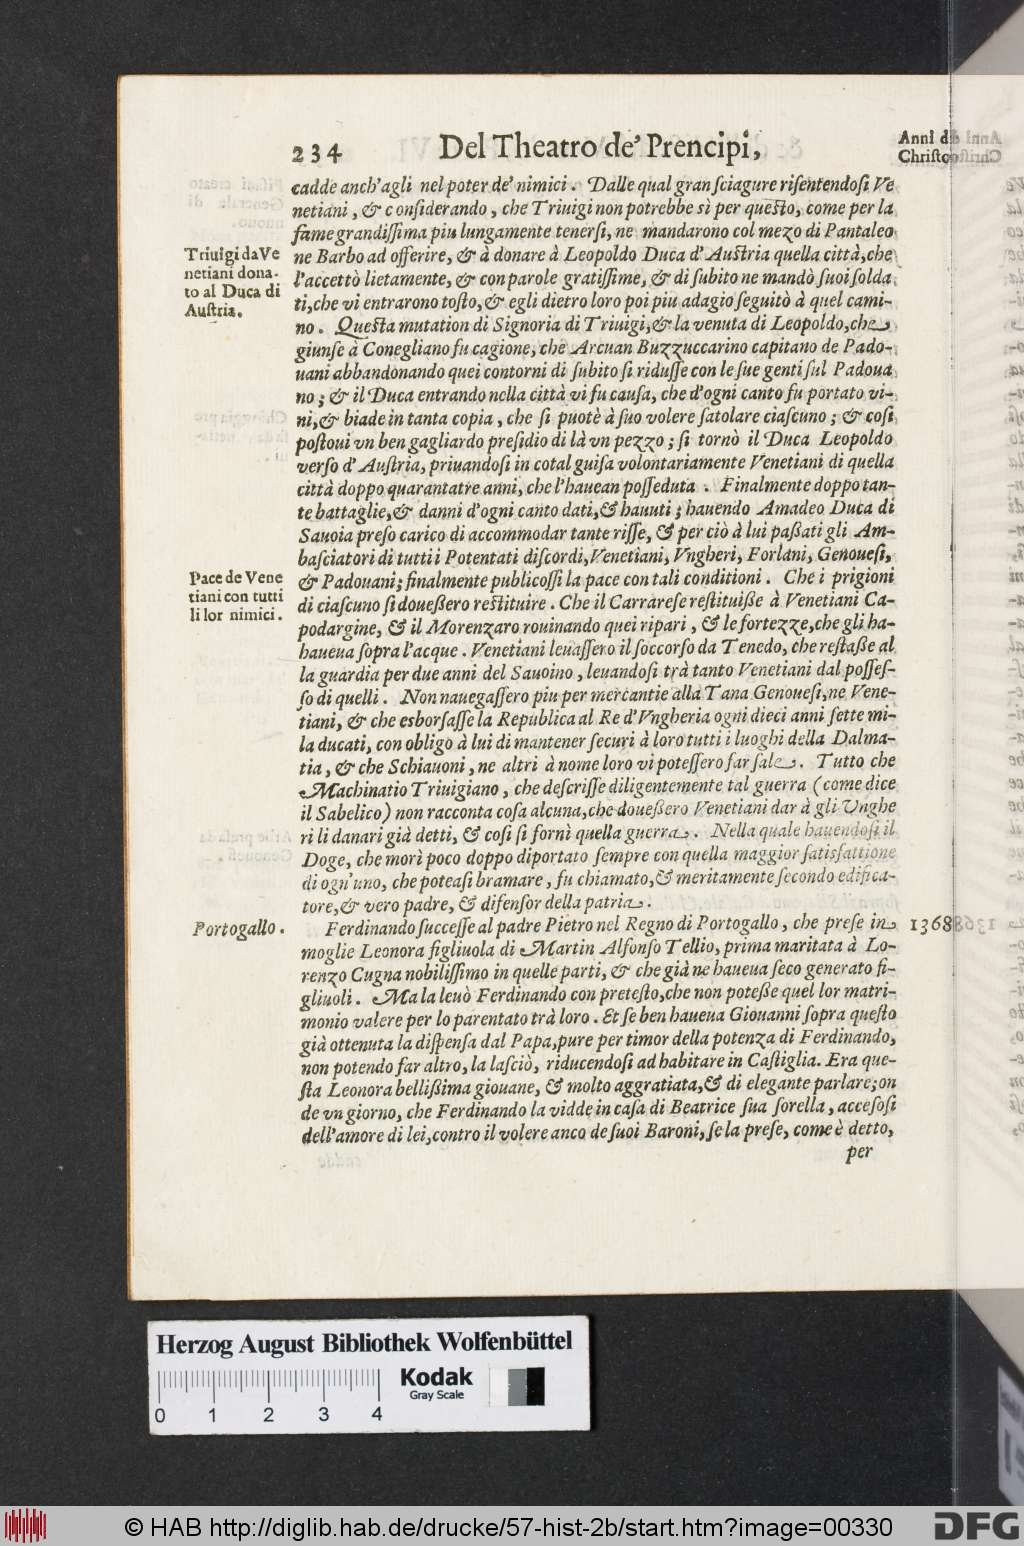 234 Del Theatro de' Prencipi, Anni di
Christo
cadde anch'agli nel poter de' nimici. Dalle qual gran ſciagure riſentendoſi Ve
netiani, & conſiderando, che Triuigi non potrebbe sì per queſto, come per la
fame grandiſſima piu lungamente tenerſi, ne mandarono col mezo di Pantaleo
ne Barbo ad offerire, & à donare à Leopoldo Duca d'Auſtria quella città, che
l'accettò lietamente, & con parole gratiſſime, & di ſubito ne mandò ſuoi ſolda
ti, che vi entrarono toſto, & egli dietro loro poi piu adagio ſeguitò à quel cami-
no. Queſta mutation di Signoria di Triuigi, & la venuta di Leopoldo, che
giunſe à Conegliano fu cagione, che Arcuan Buzzuccarino capitano de Pado-
uani abbandonando quei contorni di ſubito ſi riduſſe con le ſue genti ſul Padoua
no; & il Duca entrando nella città vi fu cauſa, che d'ogni canto fu portato vi-
ni, & biade in tanta copia, che ſi puotè à ſuo volere ſatolare ciaſcuno; & coſi
poſtoui vn ben gagliardo preſidio di là vn pezzo; ſi tornò il Duca Leopoldo
verſo d'Auſtria, priuandoſi in cotal guiſa volontariamente Venetiani di quella
città doppo quarantatre anni, che l'hauean poſſeduta. Finalmente doppo tan-
te battaglie, & danni d'ogni canto dati, & hauuti; hauendo Amadeo Duca di
Sauoia preſo carico di accommodar tante riſſe, & per ciò à lui paßati gli Am-
baſciatori di tutti i Potentati diſcordi, Venetiani, Vngheri, Forlani, Genoueſi,
& Padouani; finalmente publicoſſi la pace con tali conditioni. Che i prigioni
di ciaſcuno ſi doueßero reſtituire. Che il Carrareſe reſtituiße à Venetiani Ca-
podargine, & il Morenzaro rouinando quei ripari, & le fortezze, che gli ha-
haueua ſopra l'acque. Venetiani leuaſſero il ſoccorſo da Tenedo, che reſtaße al
la guardia per due anni del Sauoino, leuandoſi trà tanto Venetiani dal poſſeſ-
ſo di quelli. Non nauegaſſero piu per mercantie alla Tana Genoueſi, ne Vene-
tiani, & che esborſaſſe la Republica al Re d'Vngheria ogni dieci anni ſette mi-
la ducati, con obligo à lui di mantener ſecuri à loro tutti i luoghi della Dalma-
tia, & che Schiauoni, ne altri à nome loro vi poteſſero far ſale. Tutto che
Machinatio Triuigiano, che deſcriſſe diligentemente tal guerra (come dice
il Sabelico) non racconta coſa alcuna, che doueßero Venetiani dar à gli Vnghe
ri li danari già detti, & coſi ſi fornì quella guerra. Nella quale hauendoſi il
Doge, che morì poco doppo diportato ſempre con quella maggior ſatisfattione
di ogn'uno, che poteaſi bramare, fu chiamato, & meritamente ſecondo edifica-
tore, & vero padre, & difenſor della patria.
Ferdinando ſucceſſe al padre Pietro nel Regno di Portogallo, che preſe in 1368
moglie Leonora figliuola di Martin Alfonſo Tellio, prima maritata à Lo-
renzo Cugna nobiliſſimo in quelle parti, & che già ne haueua ſeco generato fi-
gliuoli. Ma la leuò Ferdinando con preteſto, che non poteße quel lor matri-
monio valere per lo parentato trà loro. Et ſe ben haueua Giouanni ſopra queſto
già ottenuta la diſpenſa dal Papa, pure per timor della potenza di Ferdinando,
non potendo far altro, la laſciò, riducendoſi ad habitare in Caſtiglia. Era que-
ſta Leonora bellißima giouane, & molto aggratiata, & di elegante parlare; on
de vn giorno, che Ferdinando la vidde in caſa di Beatrice ſua ſorella, acceſoſi
dell'amore di lei, contro il volere anco de ſuoi Baroni, ſe la preſe, come è detto,
per
Triuigi da Ve
netiani dona-
to al Duca di
Auſtria.
Pace de Vene
tiani con tutti
li lor nimici.
Portogallo.
Herzog August Bibliothek Wolfenbüttel
Kodak
Gray Scale
0 1 2 3 4
© HAB http://diglib.hab.de/drucke/57-hist-2b/start.htm?image=00330
DFG